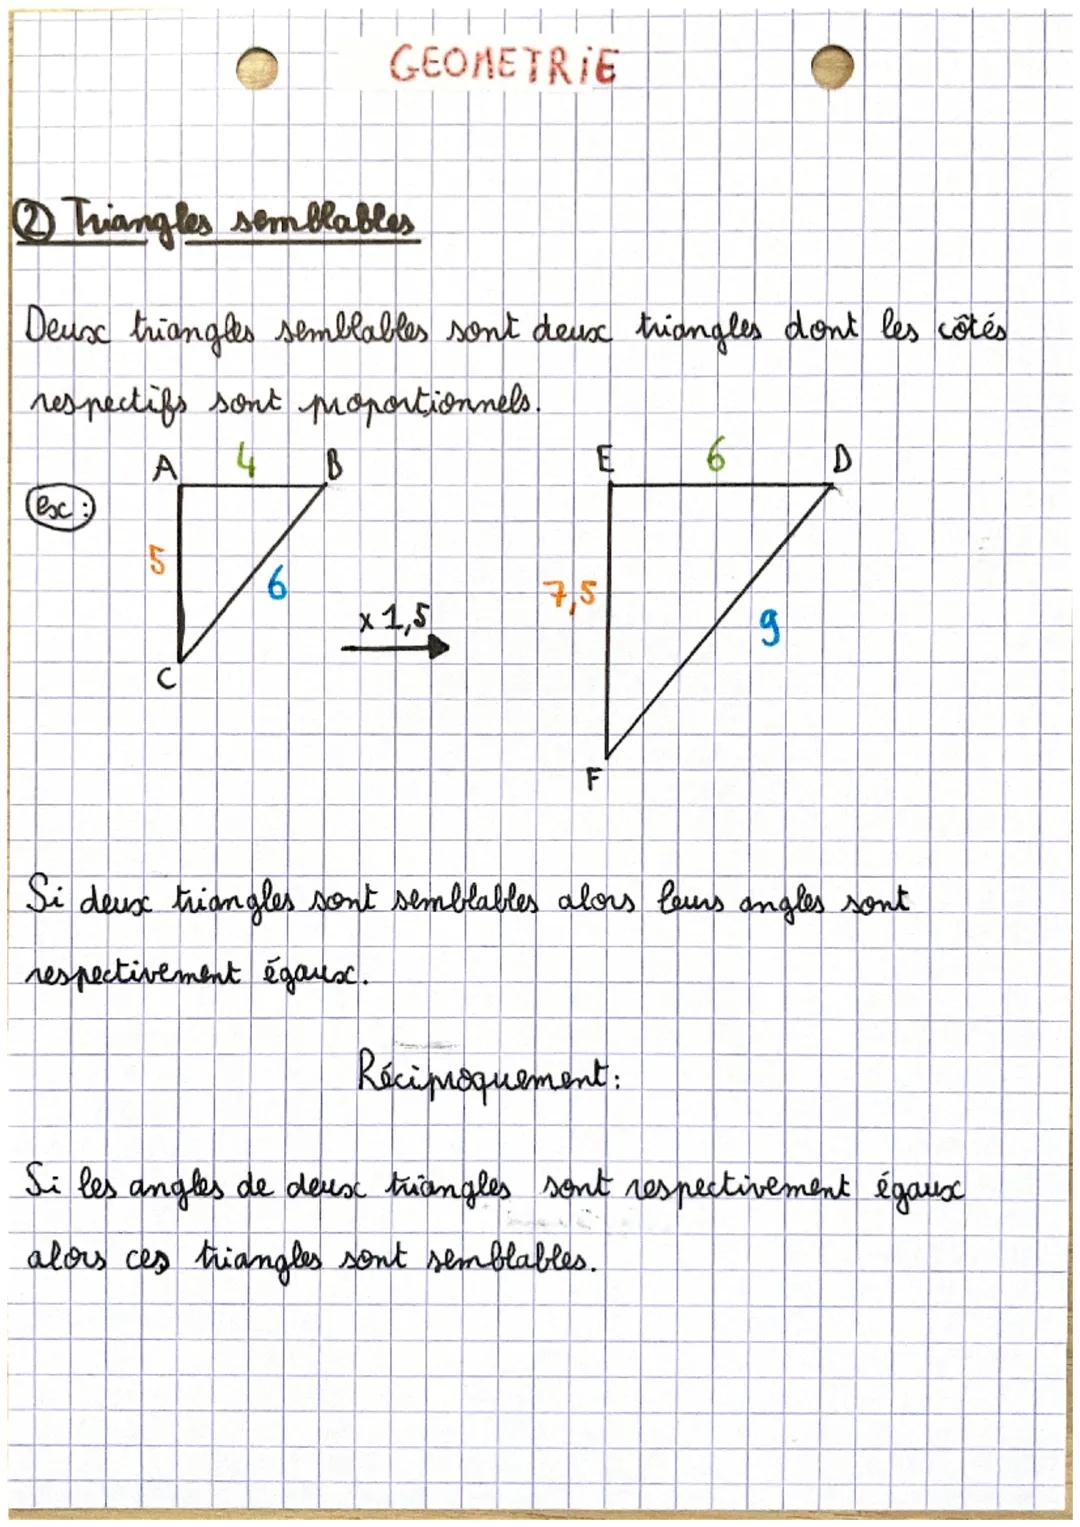 GEOMETRiE
② Triangles semblables
Deux triangles semblables sont deux triangles dont les côtés
respectifs sont proportionnels.
A 4 B E 6 D
ex :
5 6 7,5 9
x 1,5
C
F
Si deux triangles sont semblables alors leurs angles sont
respectivement égaux.
Réciproquement :
Si les angles de deux triangles sont respectivement égaux
alors ces triangles sont semblables.